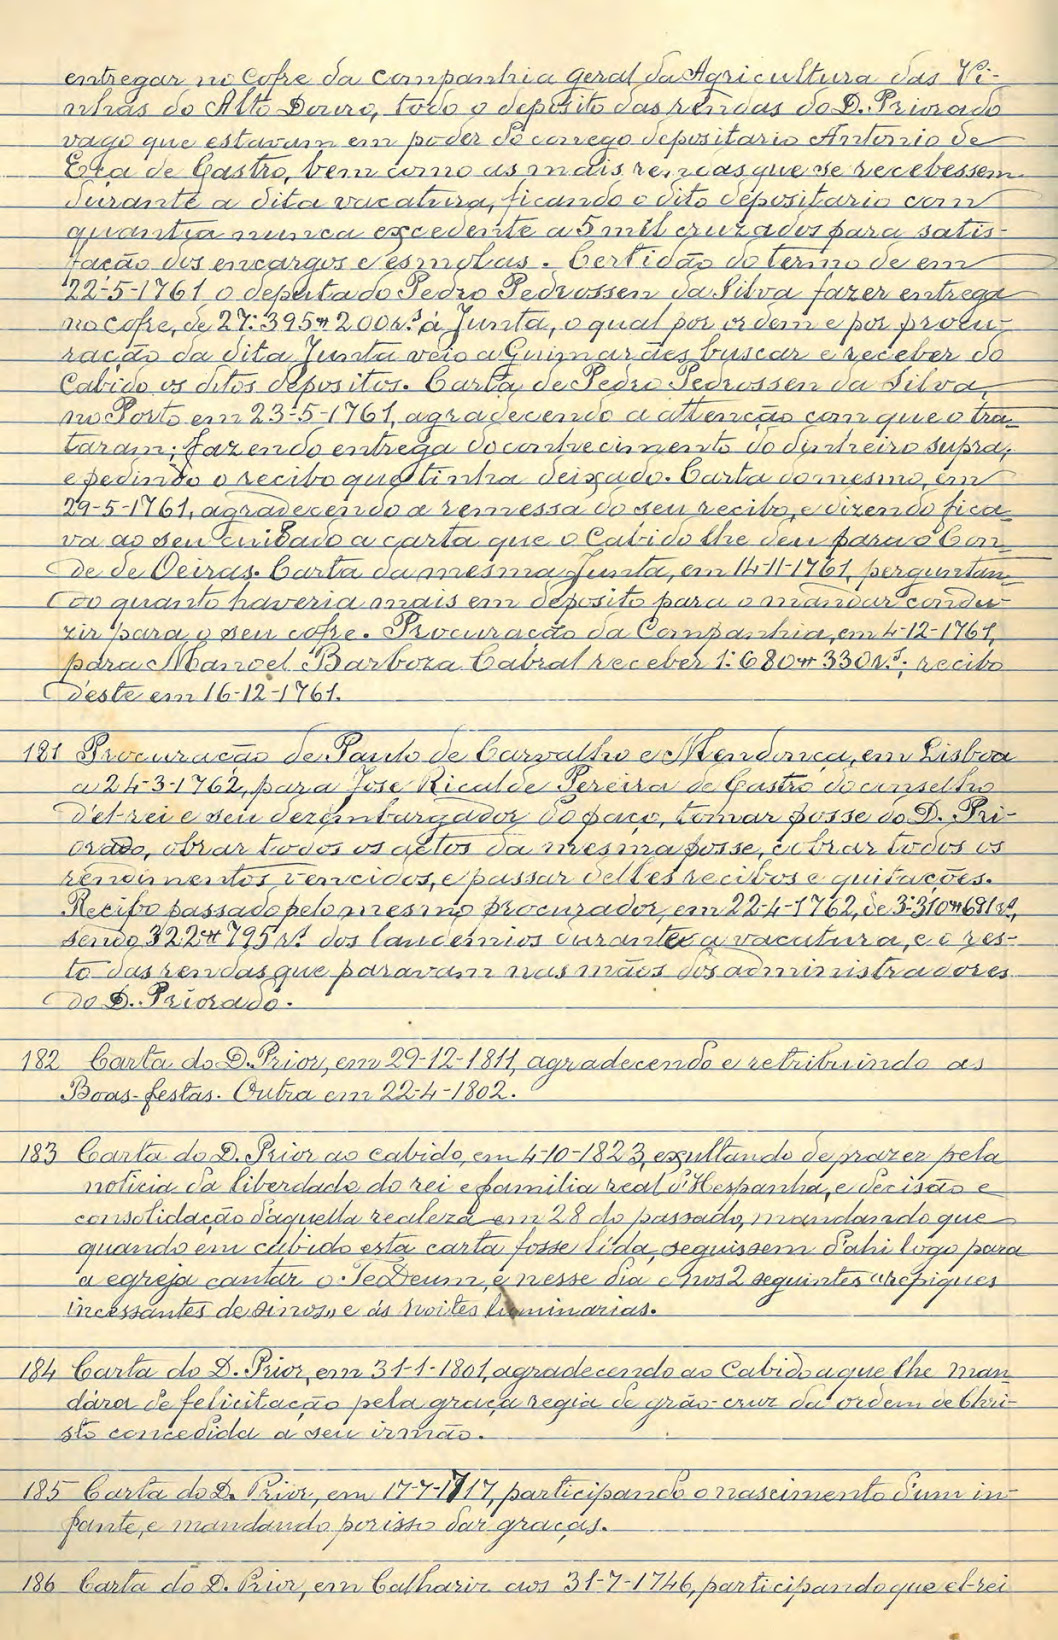 entregar no Cofre da Companhia Geral da Agricultura das Vi-
nhas do Alto Douro, todo o deposito das rendas do D. Priorado
vago que estavam em poder do conego depositario Antonio de
Eça de Castro, bem como as mais rendas que se recebessem
durante a dita vacatura, ficando o dito depositario com
quantia nunca excedente a 5 mil cruzados para satis-
fação dos encargos e esmolas. Certidão do termo de em
22-5-1761 o deputado Pedro Pedrossen da Silva fazer entrega
no cofre, de 27:395#200 r.s á Junta, o qual por ordem e por procu-
ração da dita Junta veio a Guimarães buscar e receber do
Cabido os ditos depositos. Carta de Pedro Pedrossen da Silva,
no Porto em 23-5-1761, agradecendo a attenção com que o tra-
taram; fazendo entrega do conhecimento do dinheiro supra,
e pedindo o recibo que tinha deixado. Carta do mesmo, em
29-5-1761, agradecendo a remessa do seu recibo, e dizendo fica-
va ao seu cuidado a carta que o Cabido lhe deu para o Con-
de de Oeiras. Carta da mesma Junta, em 14-11-1761, perguntan-
do quanto haveria mais em deposito para o mandar condu-
zir para o seu cofre. Procuração da Companhia, em 4-12-1761,
para Manoel Barboza Cabral receber 1:680#330 r.s; recibo
d'este em 16-12-1761.
181 Procuração de Paulo de Carvalho e Mendonça, em Lisboa
a 24-3-1762, para Jose Ricalde Pereira de Castro do conselho
d'el-rei e seu dezembargador do paço, tomar posse do D. Pri-
orado, obrar todos os actos da mesma posse, cobrar todos os
rendimentos vencidos, e passar delles recibos e quitações.
Recibo passado pelo mesmo procurador, em 22-4-1762, de 3:310#681 r.s,
sendo 322#795 r.s dos laudemios durante a vacatura, e o res-
to das rendas que paravam nas mãos dos administradores
do D. Priorado.
182 Carta do D. Prior, em 29-12-1811, agradecendo e retribuindo as
Boas-festas. Outra em 22-4-1802.
183 Carta do D. Prior ao cabido, em 4-10-1823, exultando de prazer pela
noticia da liberdade do rei e familia real d'Hespanha, e decisão e
consolidação d'aquella realeza em 28 do passado, mandando que
quando em cabido esta carta fosse lida, seguissem d'ahi logo para
a egreja cantar o TeDeum, e nesse dia e nos 2 seguintes "repiques
incessantes de sinos,, e ás noites luminarias.
184 Carta do D. Prior, em 31-1-1801, agradecendo ao Cabido a que lhe man-
dára de felicitação pela graça regia de grão-cruz da ordem de Chri-
sto concedida a seu irmão.
185 Carta do D. Prior, em 17-7-1717, participando o nascimento d'um in-
fante, e mandando por isso dar graças.
186 Carta do D. Prior, em Calhariz aos 31-7-1746, participando que el-rei